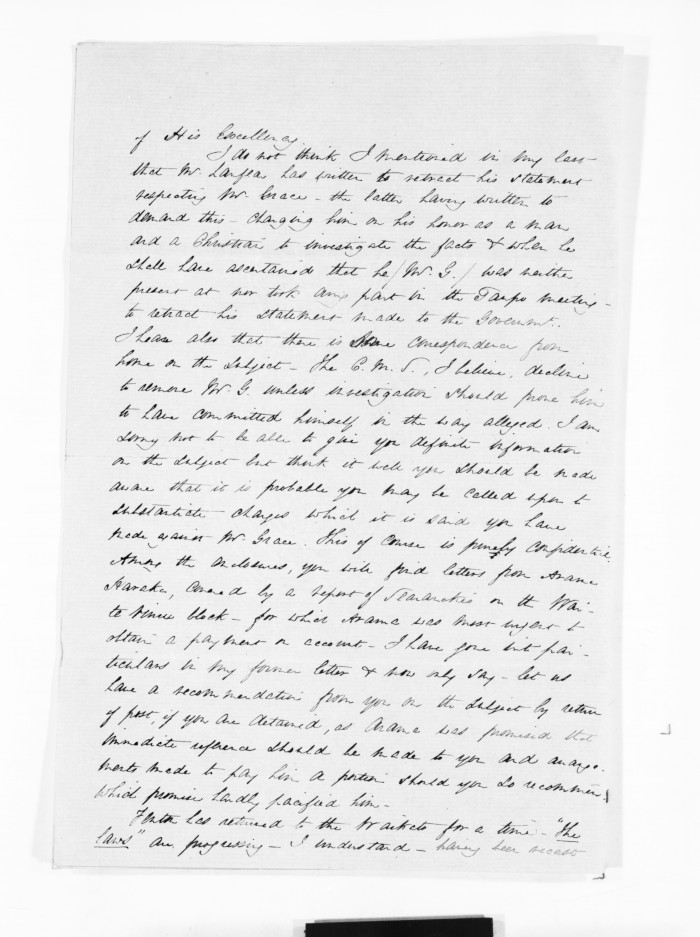 of His Excellency.
I do not think I mentioned in my last
that Mr. has written to retract his statement
respecting Mr. Grace - the latter having written to
demand this - charging him on his honor as a man
and a Christian to investigate the facts & when he
shall have ascertained that he (Mr. G.) was neither
present at nor took any part in the Taupo meeting -
to retract his statement made to the Government.
I hear also that there is some correspondence from
home on the subject - The C. M. S., I believe, decline
to remove Mr. G. unless investigation should prove him
to have committed himself in the way alleged. I am
sorry not to be able to give you definite information
on the subject but think it well you should be made
aware that it is probable you may be called upon to
substantiate charges which it is said you have
made against Mr. Grace. This of course is purely confidential.
Among the enclosures, you will find letters from Arama
Karaka, covered by a report of on the Wai-
te block - for which Arama was most urgent to
obtain a payment on account - I have gone into par-
ticulars in my former letter & now only say - let us
have a recommendation from you on the subject by return
of post, if you are detained, as Arama was promised that
immediate reference should be made to you and arrange-
ments made to pay him a portion should you so recommend
which promise hardly pacified him -
Fenton has returned to the Waikato for a time - "The
laws" are progressing - I understand - having been recast